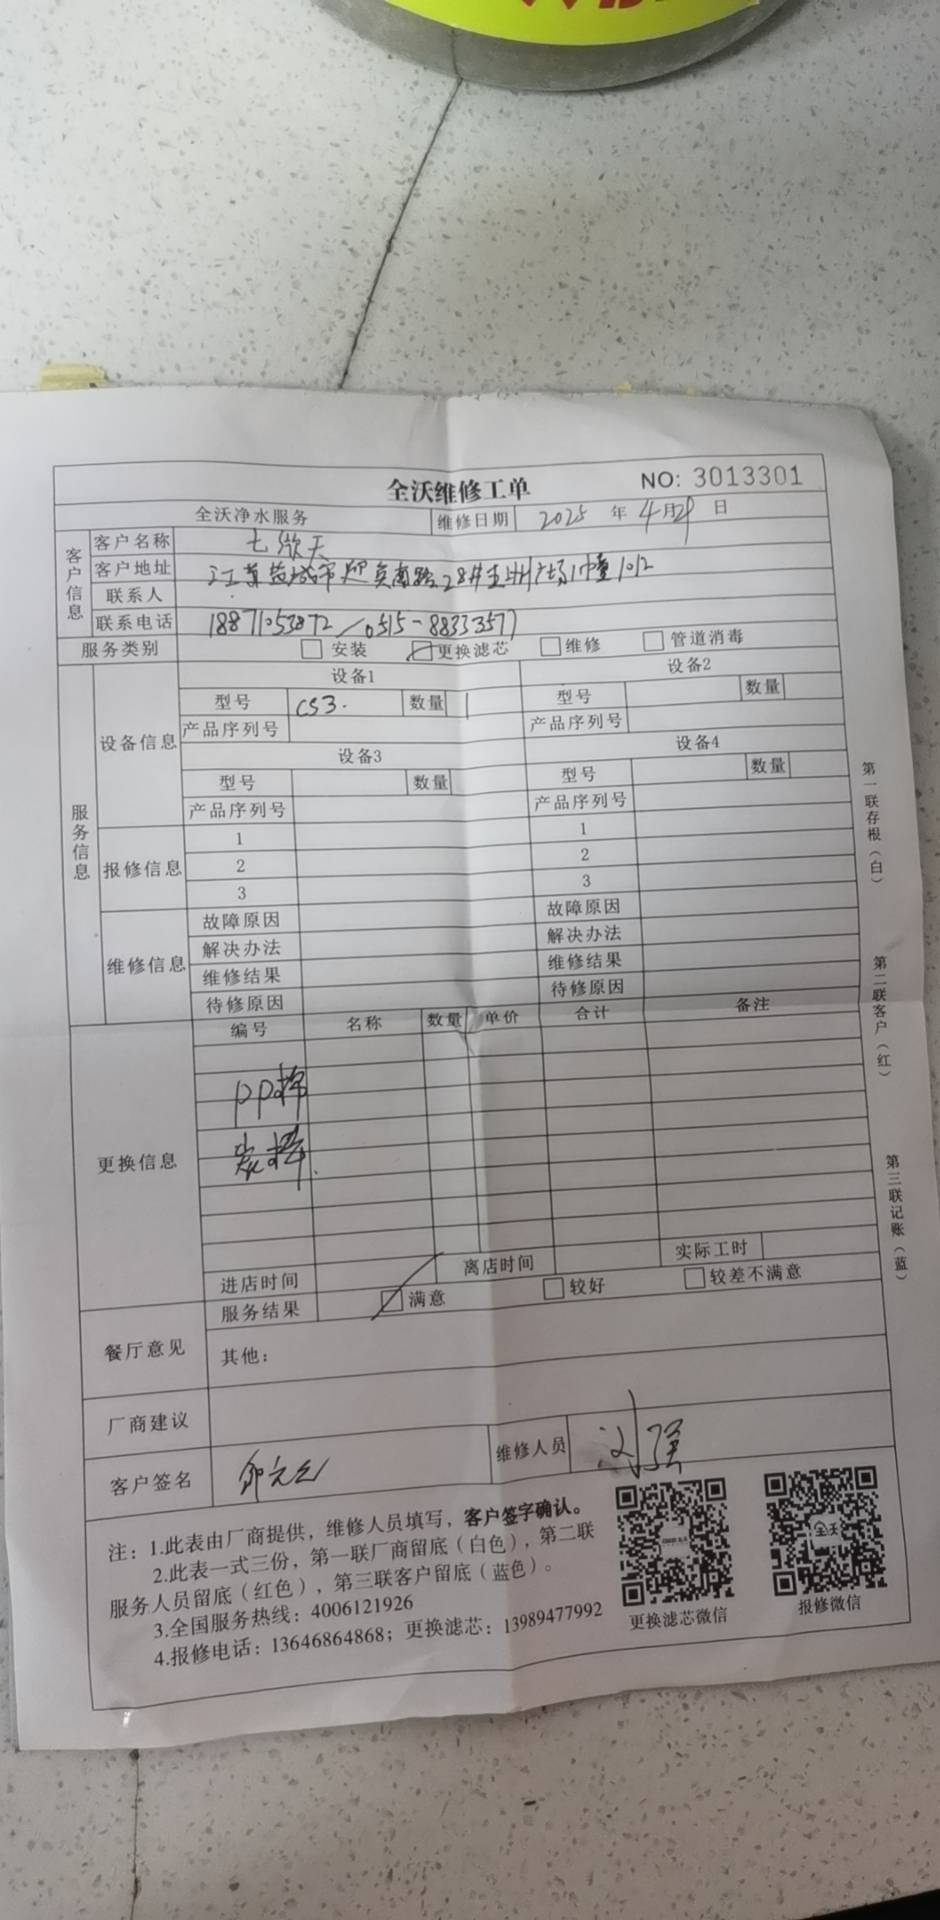 全沃维修工单 NO: 3013301
全沃净水服务 维修日期 2025 年 4月29日
客户信息
客户名称 七欣天
客户地址 江苏盐城市迎宾南路28#五洲广场1幢1012
联系人
联系电话 18871053872/0515-88333577
服务类别 安装 更换滤芯 维修 管道消毒
服务信息
设备信息
设备1 设备2
型号 CS3. 数量 1 型号 数量
产品序列号 产品序列号
设备3 设备4
型号 数量 型号 数量
产品序列号 产品序列号
报修信息
1 1
2 2
3 3
维修信息
故障原因 故障原因
解决办法 解决办法
维修结果 维修结果
待修原因 待修原因
更换信息
编号 名称 数量 单价 合计 备注
PP棉
炭棒.
进店时间 离店时间 实际工时
餐厅意见
服务结果 满意 较好 较差不满意
其他：
厂商建议
客户签名 维修人员 刘强
注：1.此表由厂商提供，维修人员填写，客户签字确认。
2.此表一式三份，第一联厂商留底（白色），第二联
服务人员留底（红色），第三联客户留底（蓝色）。
3.全国服务热线：4006121926
4.报修电话：13646864868；更换滤芯：13989477992
更换滤芯微信 报修微信
第一联存根（白）
第二联客户（红）
第三联记账（蓝）